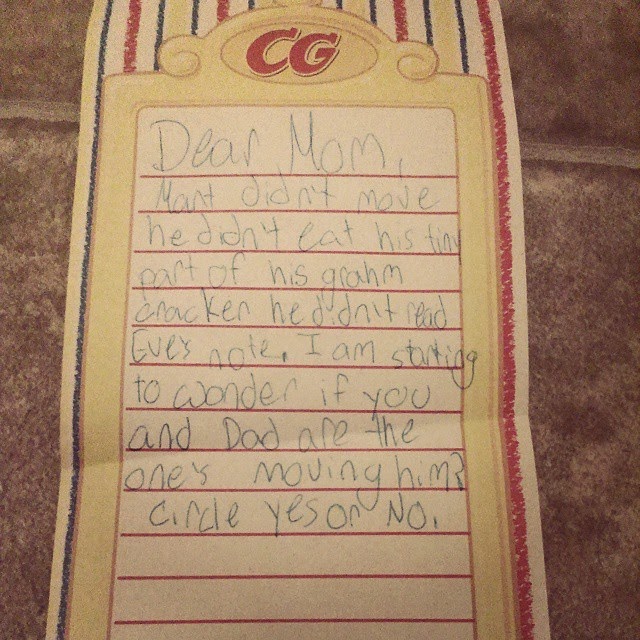 CG
Dear Mom,
Mart didn't move
he didn't eat his tiny
part of his grahm
cracker he didn't read
Eve's note. I am starting
to wonder if you
and Dad are the
one's moving him?
circle yes or No.